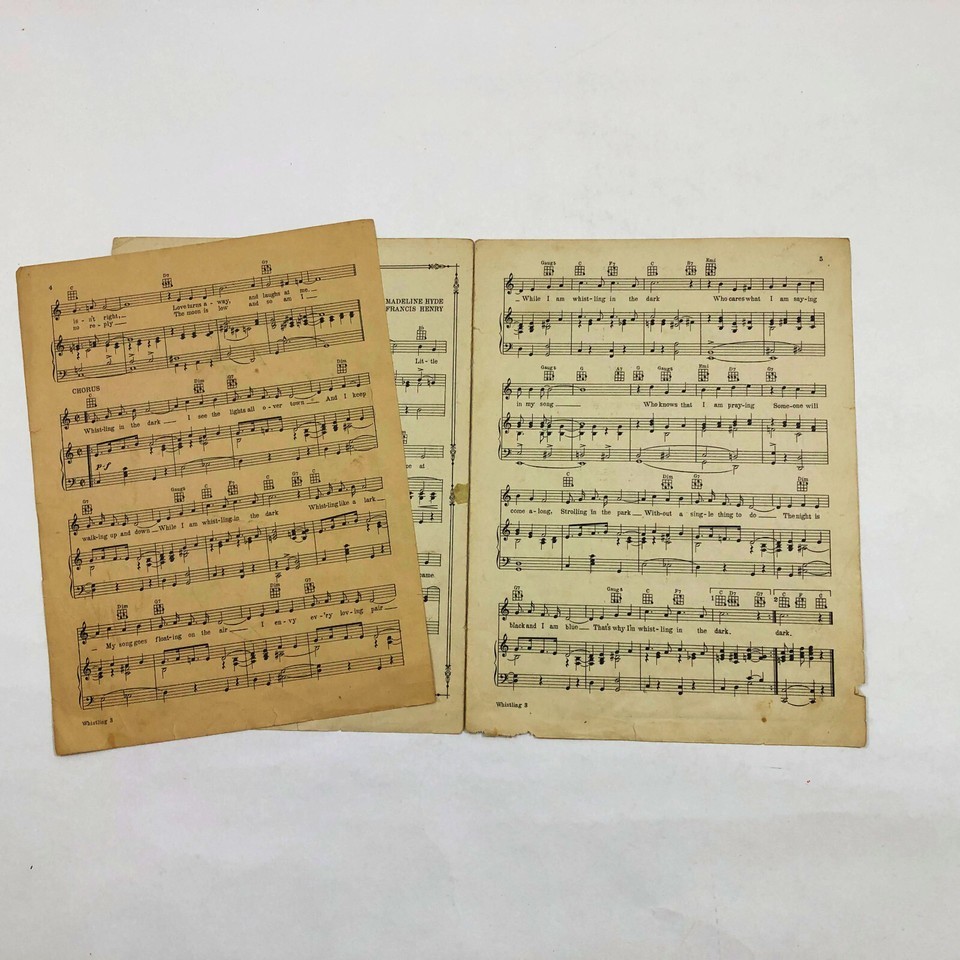 4
C
D7
G7
is - n't right,
Love turns a - way,
and laughs at me
no re - ply
The moon is low
and so am I
CHORUS
Dim
G7
Dim
Whist-ling in the dark I see the lights all o - ver town And I keep
p-f
G7
Gaug5
C
F7
C
G7
C
walk-ing up and down While I am whist-ling in the dark Whist-ling like a lark
Dim
G7
Dim
G7
My song goes float-ing on the air I en - vy ev - 'ry lov - ing pair
Whistling 3
MADELINE HYDE
FRANCIS HENRY
Lit - tle
at
came
5
Gaug5
C
F7
C
B7
Emi
While I am whist-ling in the dark Who cares what I am say-ing
Gaug5
G
A7
G
Gaug5
Emi
D7
G7
in my song Who knows that I am pray-ing Some-one will
C
Dim
G7
Dim
come a-long, Strolling in the park With-out a sin-gle thing to do The night is
G7
Gaug5
C
F7
1
C
D7
G7
2
C
F
C
black and I am blue That's why I'm whist-ling in the dark. dark.
Whistling 3